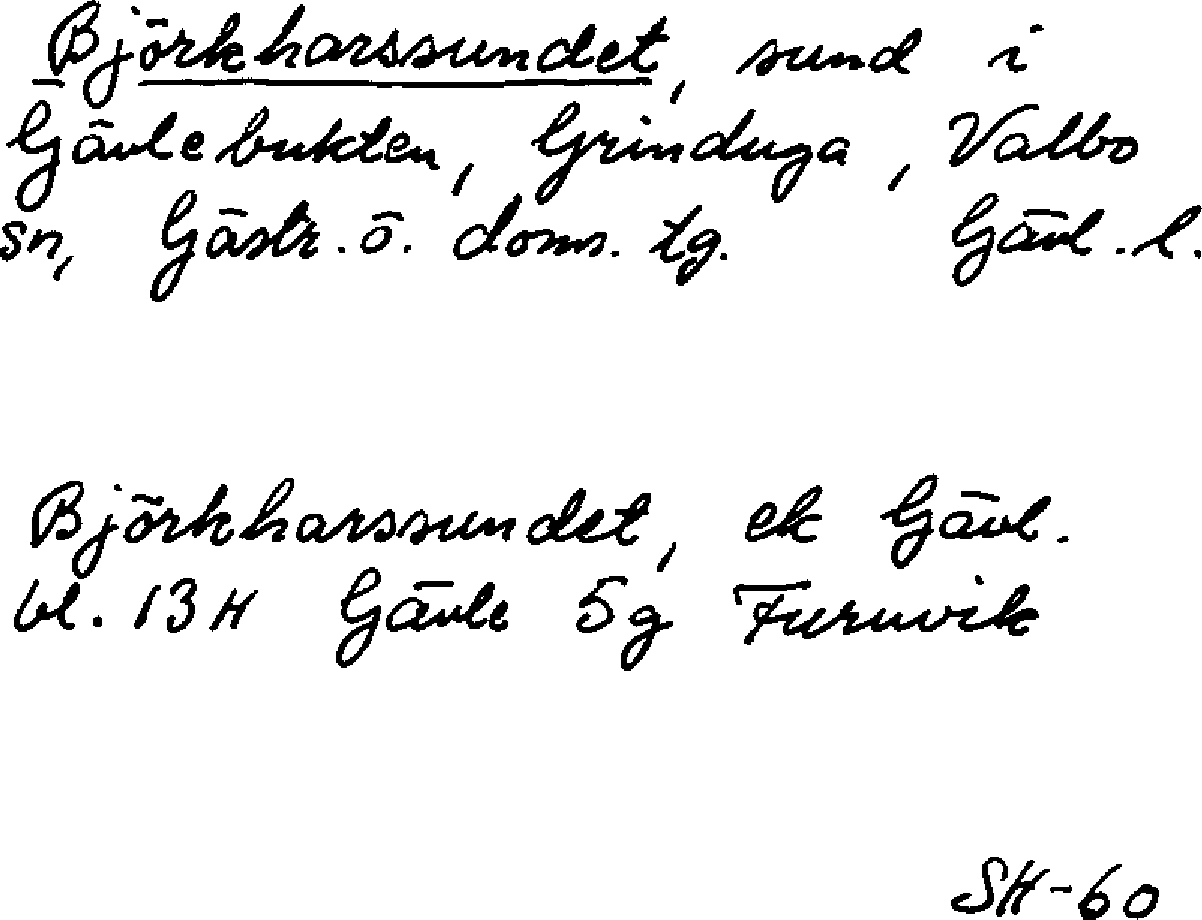 Björkharssundet, sund i
Gävlebukten, Grinduga, Valbo
sn, Gästr. ö. doms. tg. Gävl. l.
Björkharssundet, ek Gävl.
bl. 13 H Gävle 5g Furuvik
SH-60